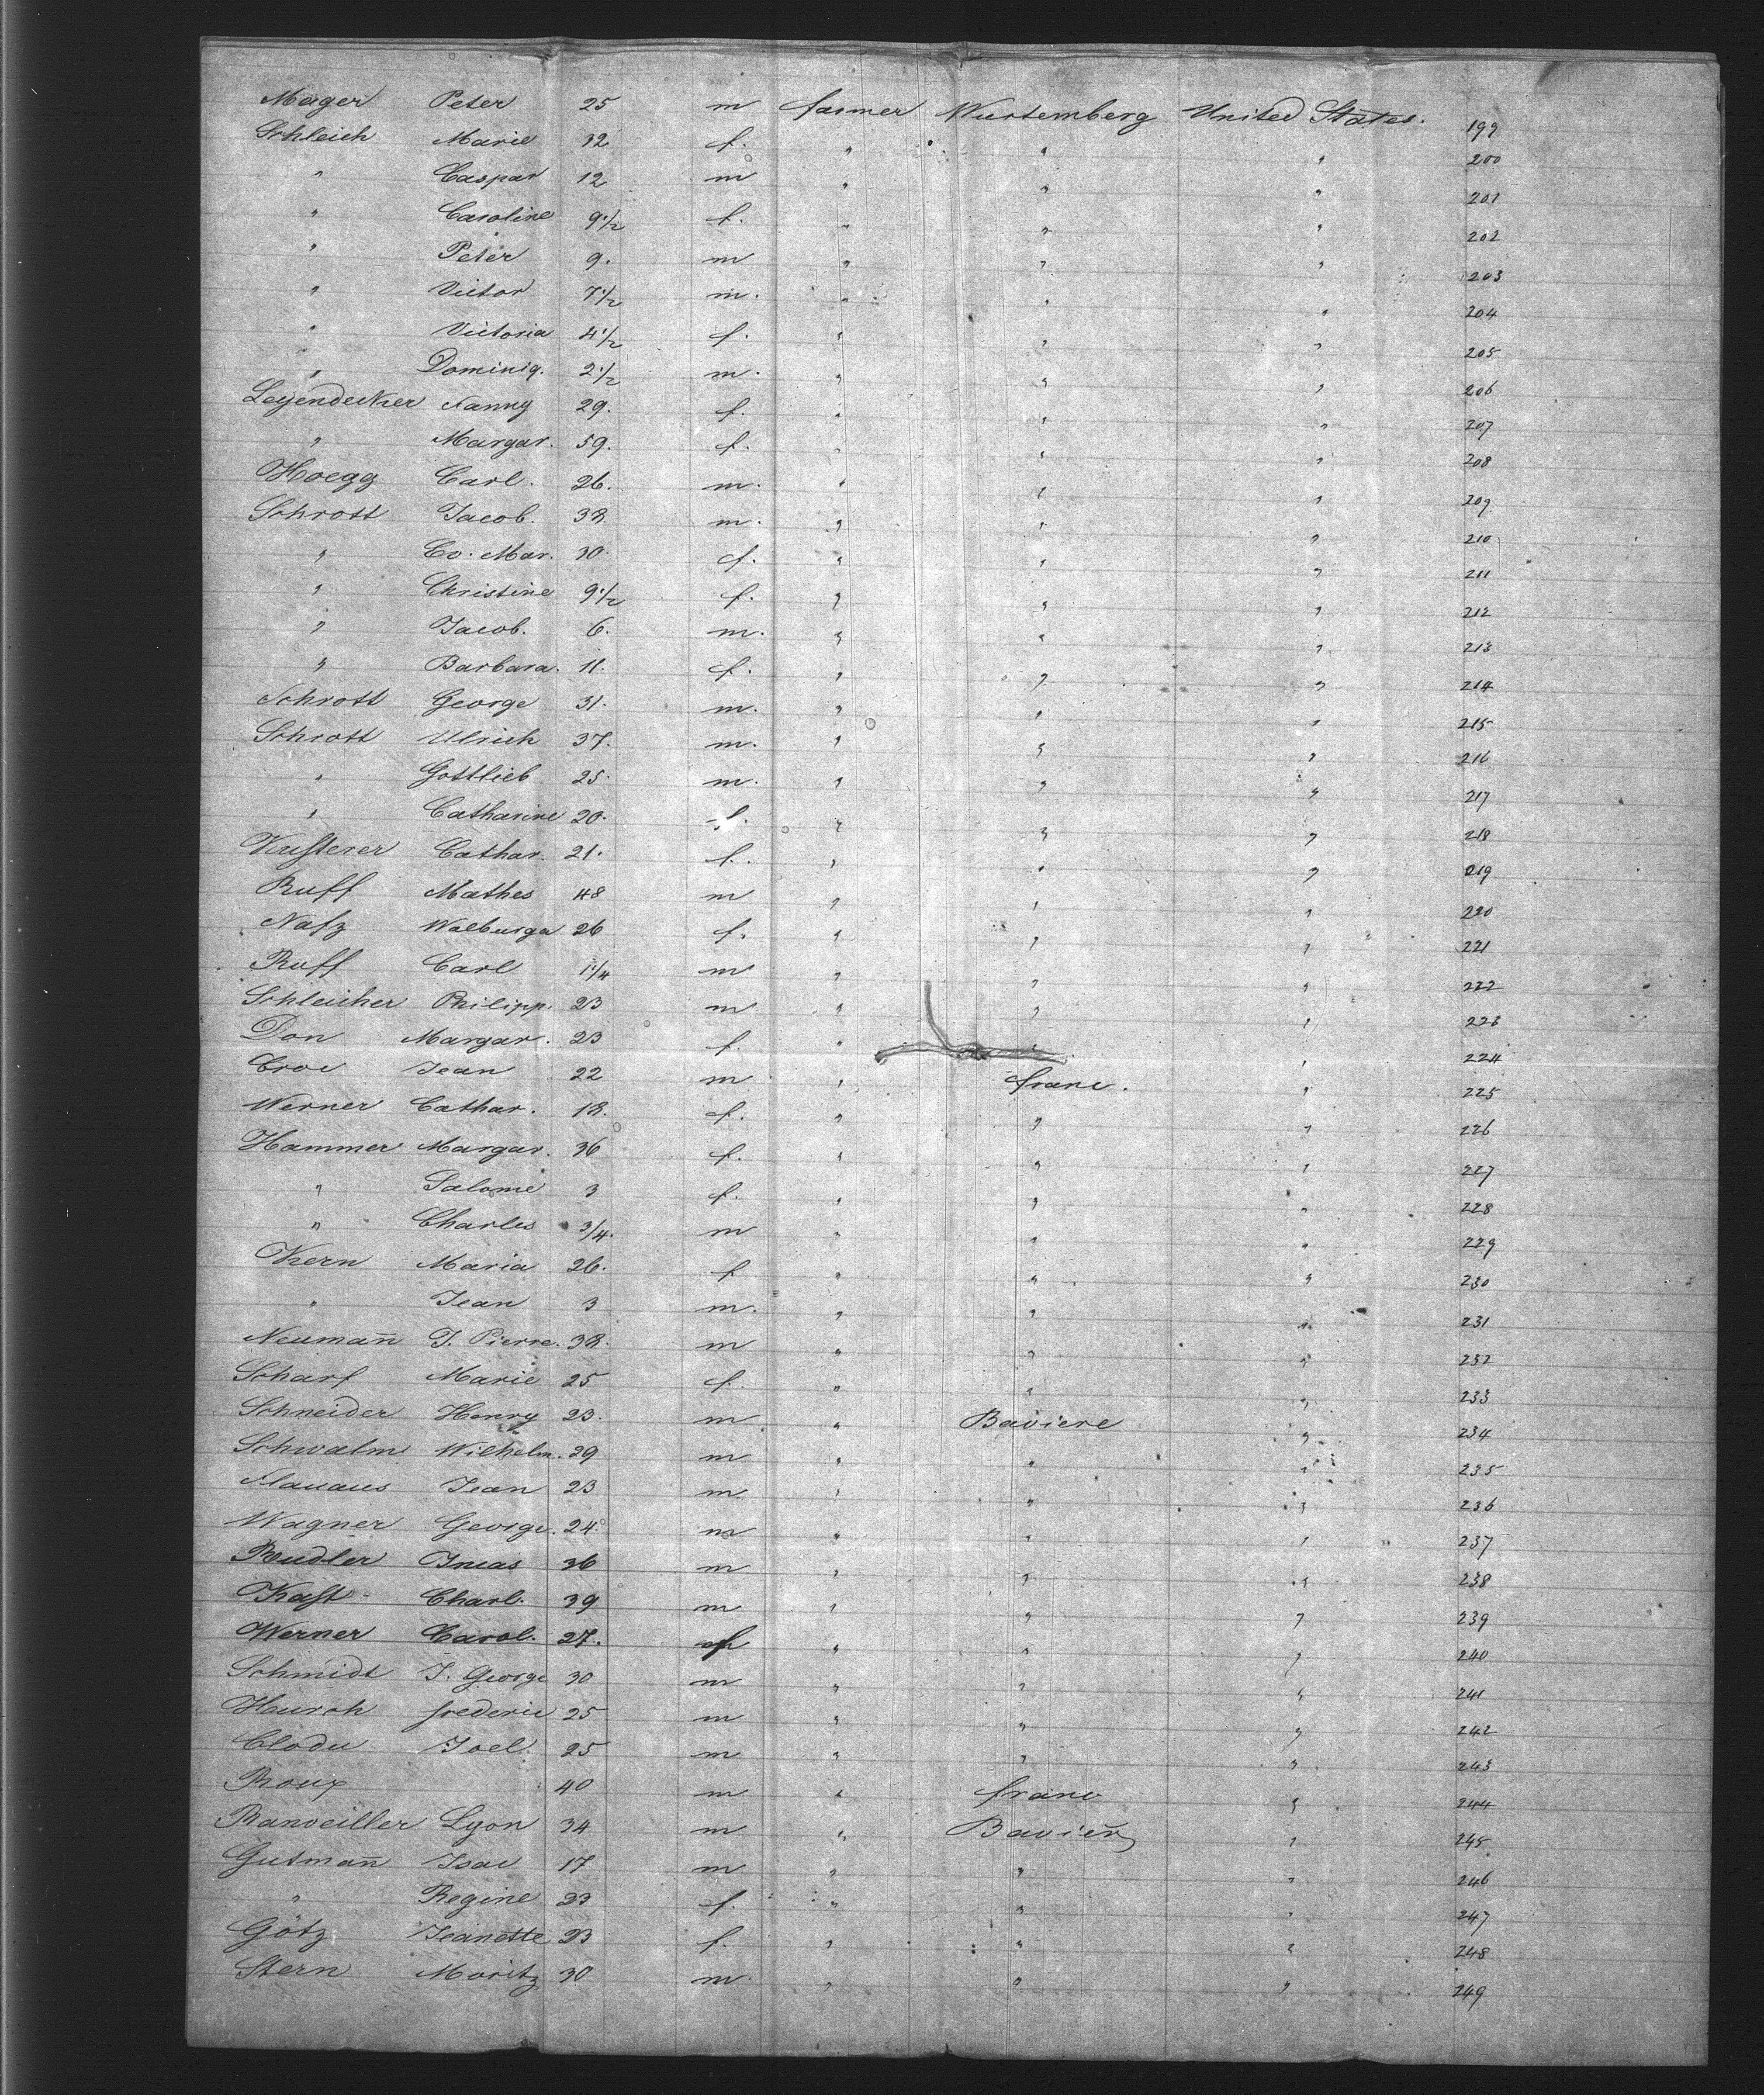 Mager Peter 25 m farmer Wurtemberg United States. 199
Schleich Marie 32 f. " " " 200
" Caspar 12 m " " " 201
" Caroline 9 1/2 f. " " " 202
" Peter 9. m " " " 203
" Victor 7 1/2 m. " " " 204
" Victoria 4 1/2 f. " " " 205
" Dominiq. 2 1/2 m. " " " 206
Leyendecker Nanny 29. f. " " " 207
" Margar. 59. f. " " " 208
Hoegg Carl. 26. m. " " " 209
Schrott Jacob. 38. m. " " " 210
" Ev. Mar. 30. f. " " " 211
" Christine 9 1/2 f. " " " 212
" Jacob. 6. m. " " " 213
" Barbara. 11. f. " " " 214
Schrott George 31. m. " " " 215
Schrott Ulrich 37. m. " " " 216
" Gottlieb 25. m. " " " 217
" Catharine 20. f. " " " 218
Kusterer Cathar. 21. f. " " " 219
Ruff Mathes 48 m " " " 220
Nafz Walburga 26 f. " " " 221
Ruff Carl 1 1/4 m " " " 222
Schleicher Philipp. 23 m " " " 223
Don Margar. 23 f. " " " 224
Jean 22 m " franc. " 225
Werner Cathar. 18. f. " " " 226
Hammer Margar. 36 f. " " " 227
" Salome 3 f. " " " 228
" Charles 3/4. m " " " 229
Kern Maria 26. f " " " 230
" Jean 3 m. " " " 231
Neumañ J. Pierre. 38. m " " " 232
Scharf Marie 25 f. " " " 233
Schneider Henry 23. m " Baviere " 234
Schwalm Wilhelm. 29 m " " " 235
Jean 23 m " " " 236
Wagner George. 24. m " " " 237
Rudler 36 m " " " 238
Kast Charl. 39 m " " " 239
Werner Carol. 27. f " " " 240
Schmidt J. George 30 m " " " 241
frederic 25 m " " " 242
Joel. 25 m " " " 243
Roux 40 m " franc " 244
Ranveiller Lyon 34 m " " 245
Gutmañ Isac 17 m " " " 246
" Regine 23 f. " " " 247
Götz Jeanette 23 f. " " " 248
Stern Moritz 30 m. " " " 249